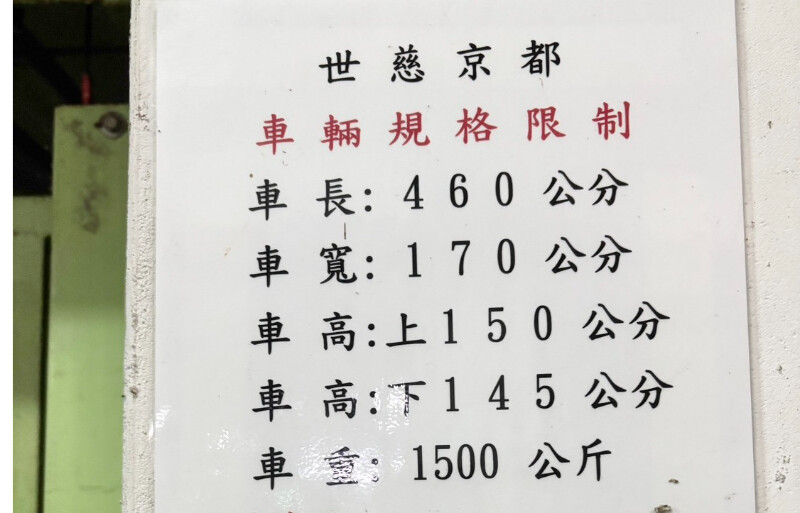 世慈京都
車輛規格限制
車長: 460 公分
車寬: 170 公分
車高:上150 公分
車高:下145 公分
車重: 1500 公斤